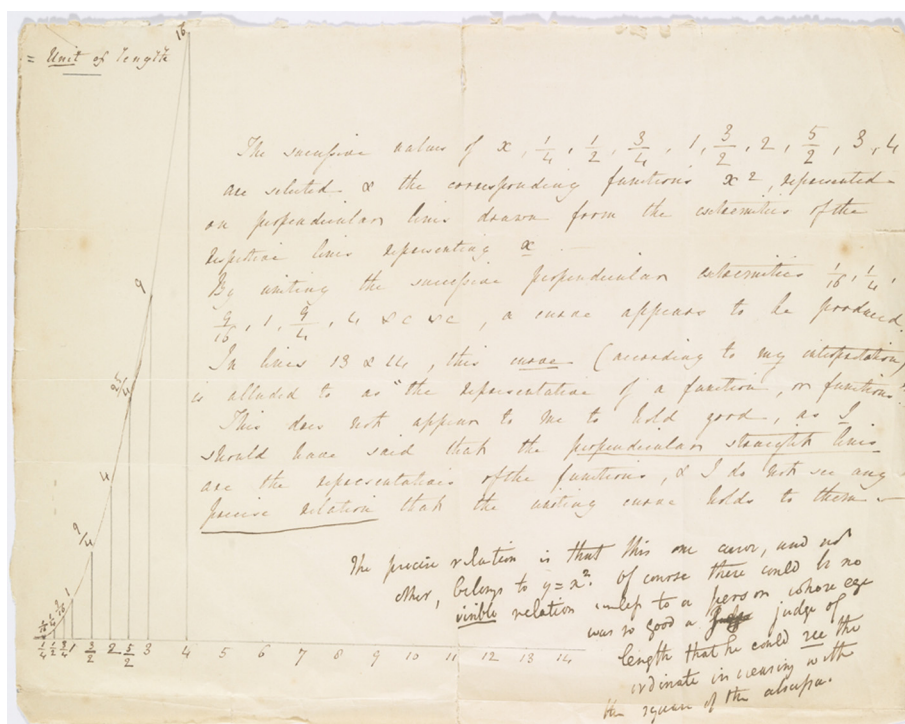 16
= Unit of length
The successive values of x, 1/4, 1/2, 3/4, 1, 3/2, 2, 5/2, 3, 4
are selected & the corresponding functions x², represented
on perpendicular lines drawn from the extremities of the
respective lines representing x
By uniting the successive perpendicular extremities 1/16, 1/4,
9/16, 1, 9/4, 4 &c &c, a curve appears to be produced.
In lines 13 & 14, this curve (according to my interpretation)
is alluded to as "the representation of a function, or functions".
This does not appear to me to hold good, as I
should have said that the perpendicular straight lines
are the representations of the functions, & I do not see any
precise relation that the uniting curve holds to them —
The precise relation is that this one curve, and no
other, belongs to y=x². Of course there could be no
visible relation unless to a person whose eye
was so good a judge of
length that he could see the
ordinate increasing with
the square of the abscissa.
9
25/4
4
9/4
1
9/16
1/4
1/2
3/4
1
3/2
2
5/2
3
4
5
6
7
8
9
10
11
12
13
14